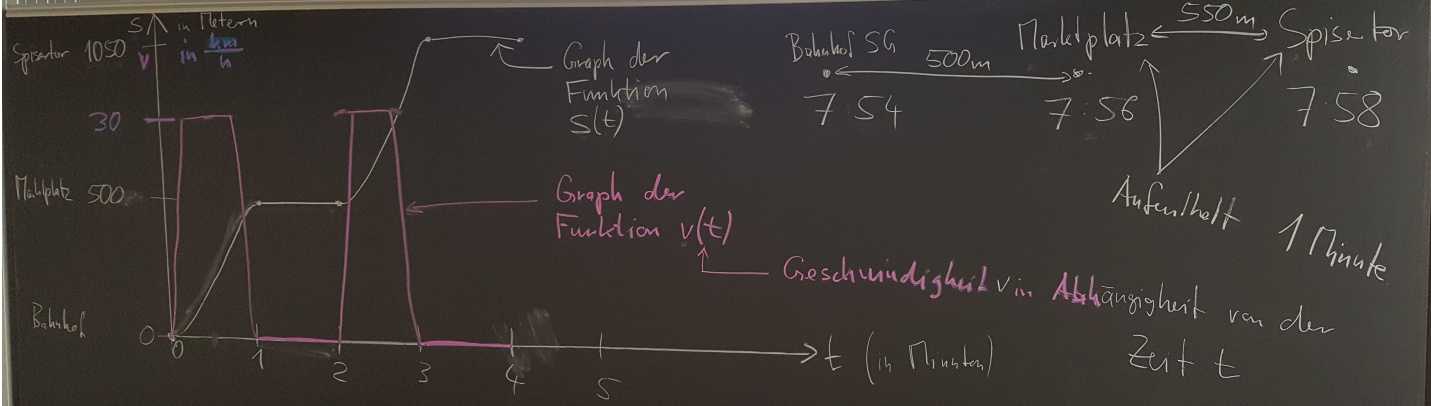 S in Metern
Spisertor 1050 v in km/h
30
Marktplatz 500
Bahnhof 0
0 1 2 3 4 5
t (in Minuten)
Graph der
Funktion
S(t)
Graph der
Funktion v(t)
Geschwindigkeit v in Abhängigkeit von der
Zeit t
Bahnhof SG 500m Marktplatz 550m Spisertor
7:54 7:56 7:58
Aufenthalt 1 Minute